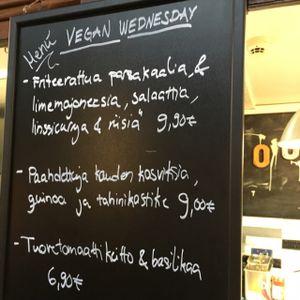 Menu VEGAN WEDNESDAY
- Friteerattua parsakaalia, &
limemajoneesia, salaattia,
linssicurrya & riisiä 9,90€
- Paahdettuja kauden kasviksia,
quinoa ja tahinikastike 9,00€
- Tuoretomaattikeitto & basilikaa
6,90€